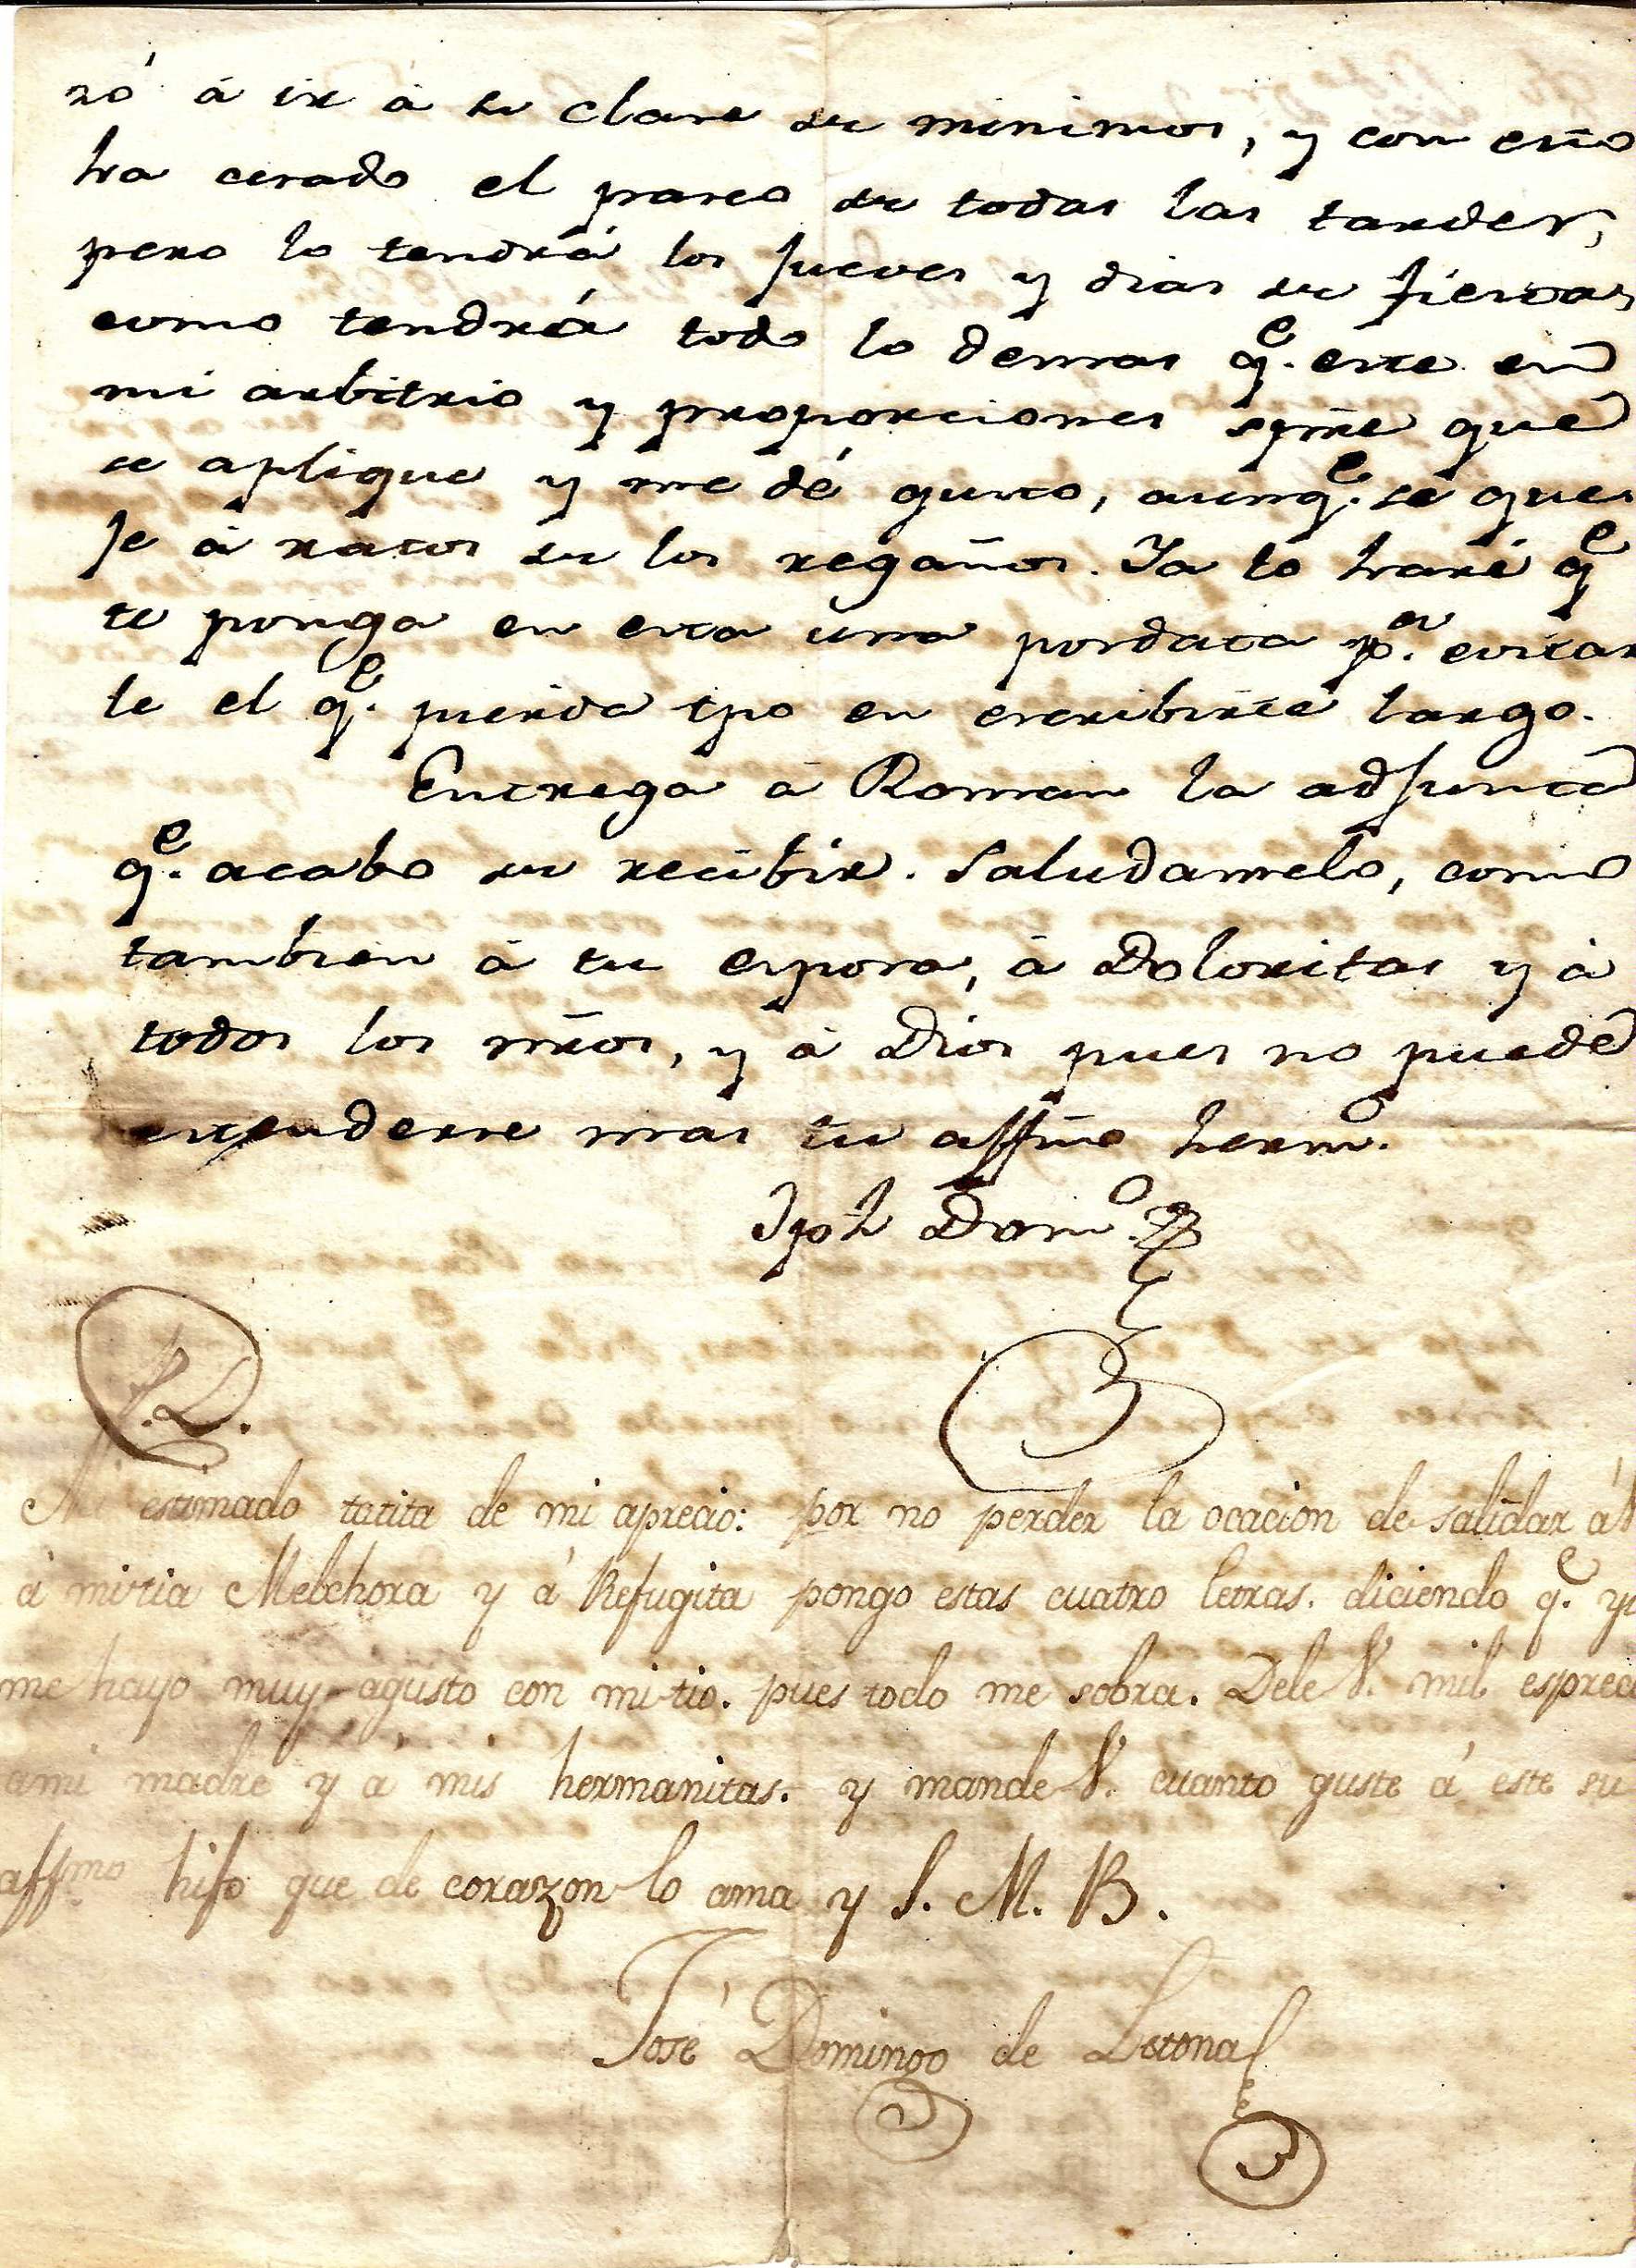 zó á ir á su clase de minimos, y con esto
ha cesado el paseo de todas las tardes,
pero lo tendrá los jueves y dias de fiesta,
como tendrá todo lo demas qe. este en
mi arbitrio y proporciones spre que
se aplique y me dé gusto, aunqe. se que
je á ratos de los regaños. Ya lo haré qe
te ponga en esta una posdata pa. evitar
le el qe. pierda tpo en escribirte largo.
Entrega á Roman la adjunta
qe. acabo de recibir. Saludamelo, como
tambien á tu esposa, á Doloritas y á
todos los nros, y á Dios pues no puede
extenderse mas tu affmo hermo.
Jph Domo.
P.D.
Mi estimado tatita de mi aprecio: por no perder la ocacion de saludar á V
á mi tia Melchora y á Refugita pongo estas cuatro letras. diciendo qe. yo
me hayo muy agusto con mi tio. pues todo me sobra. Dele V. mil espreci
a mi madre y á mis hermanitas. y mande V. cuanto guste á este su
affmo hijo que de corazon lo ama y S. M. B.
José Domingo de Letona